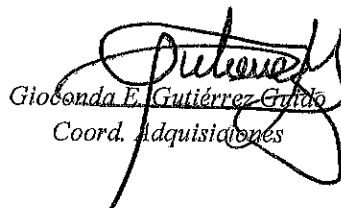 Gioconda E. Gutiérrez Guido
Coord. Adquisiciones